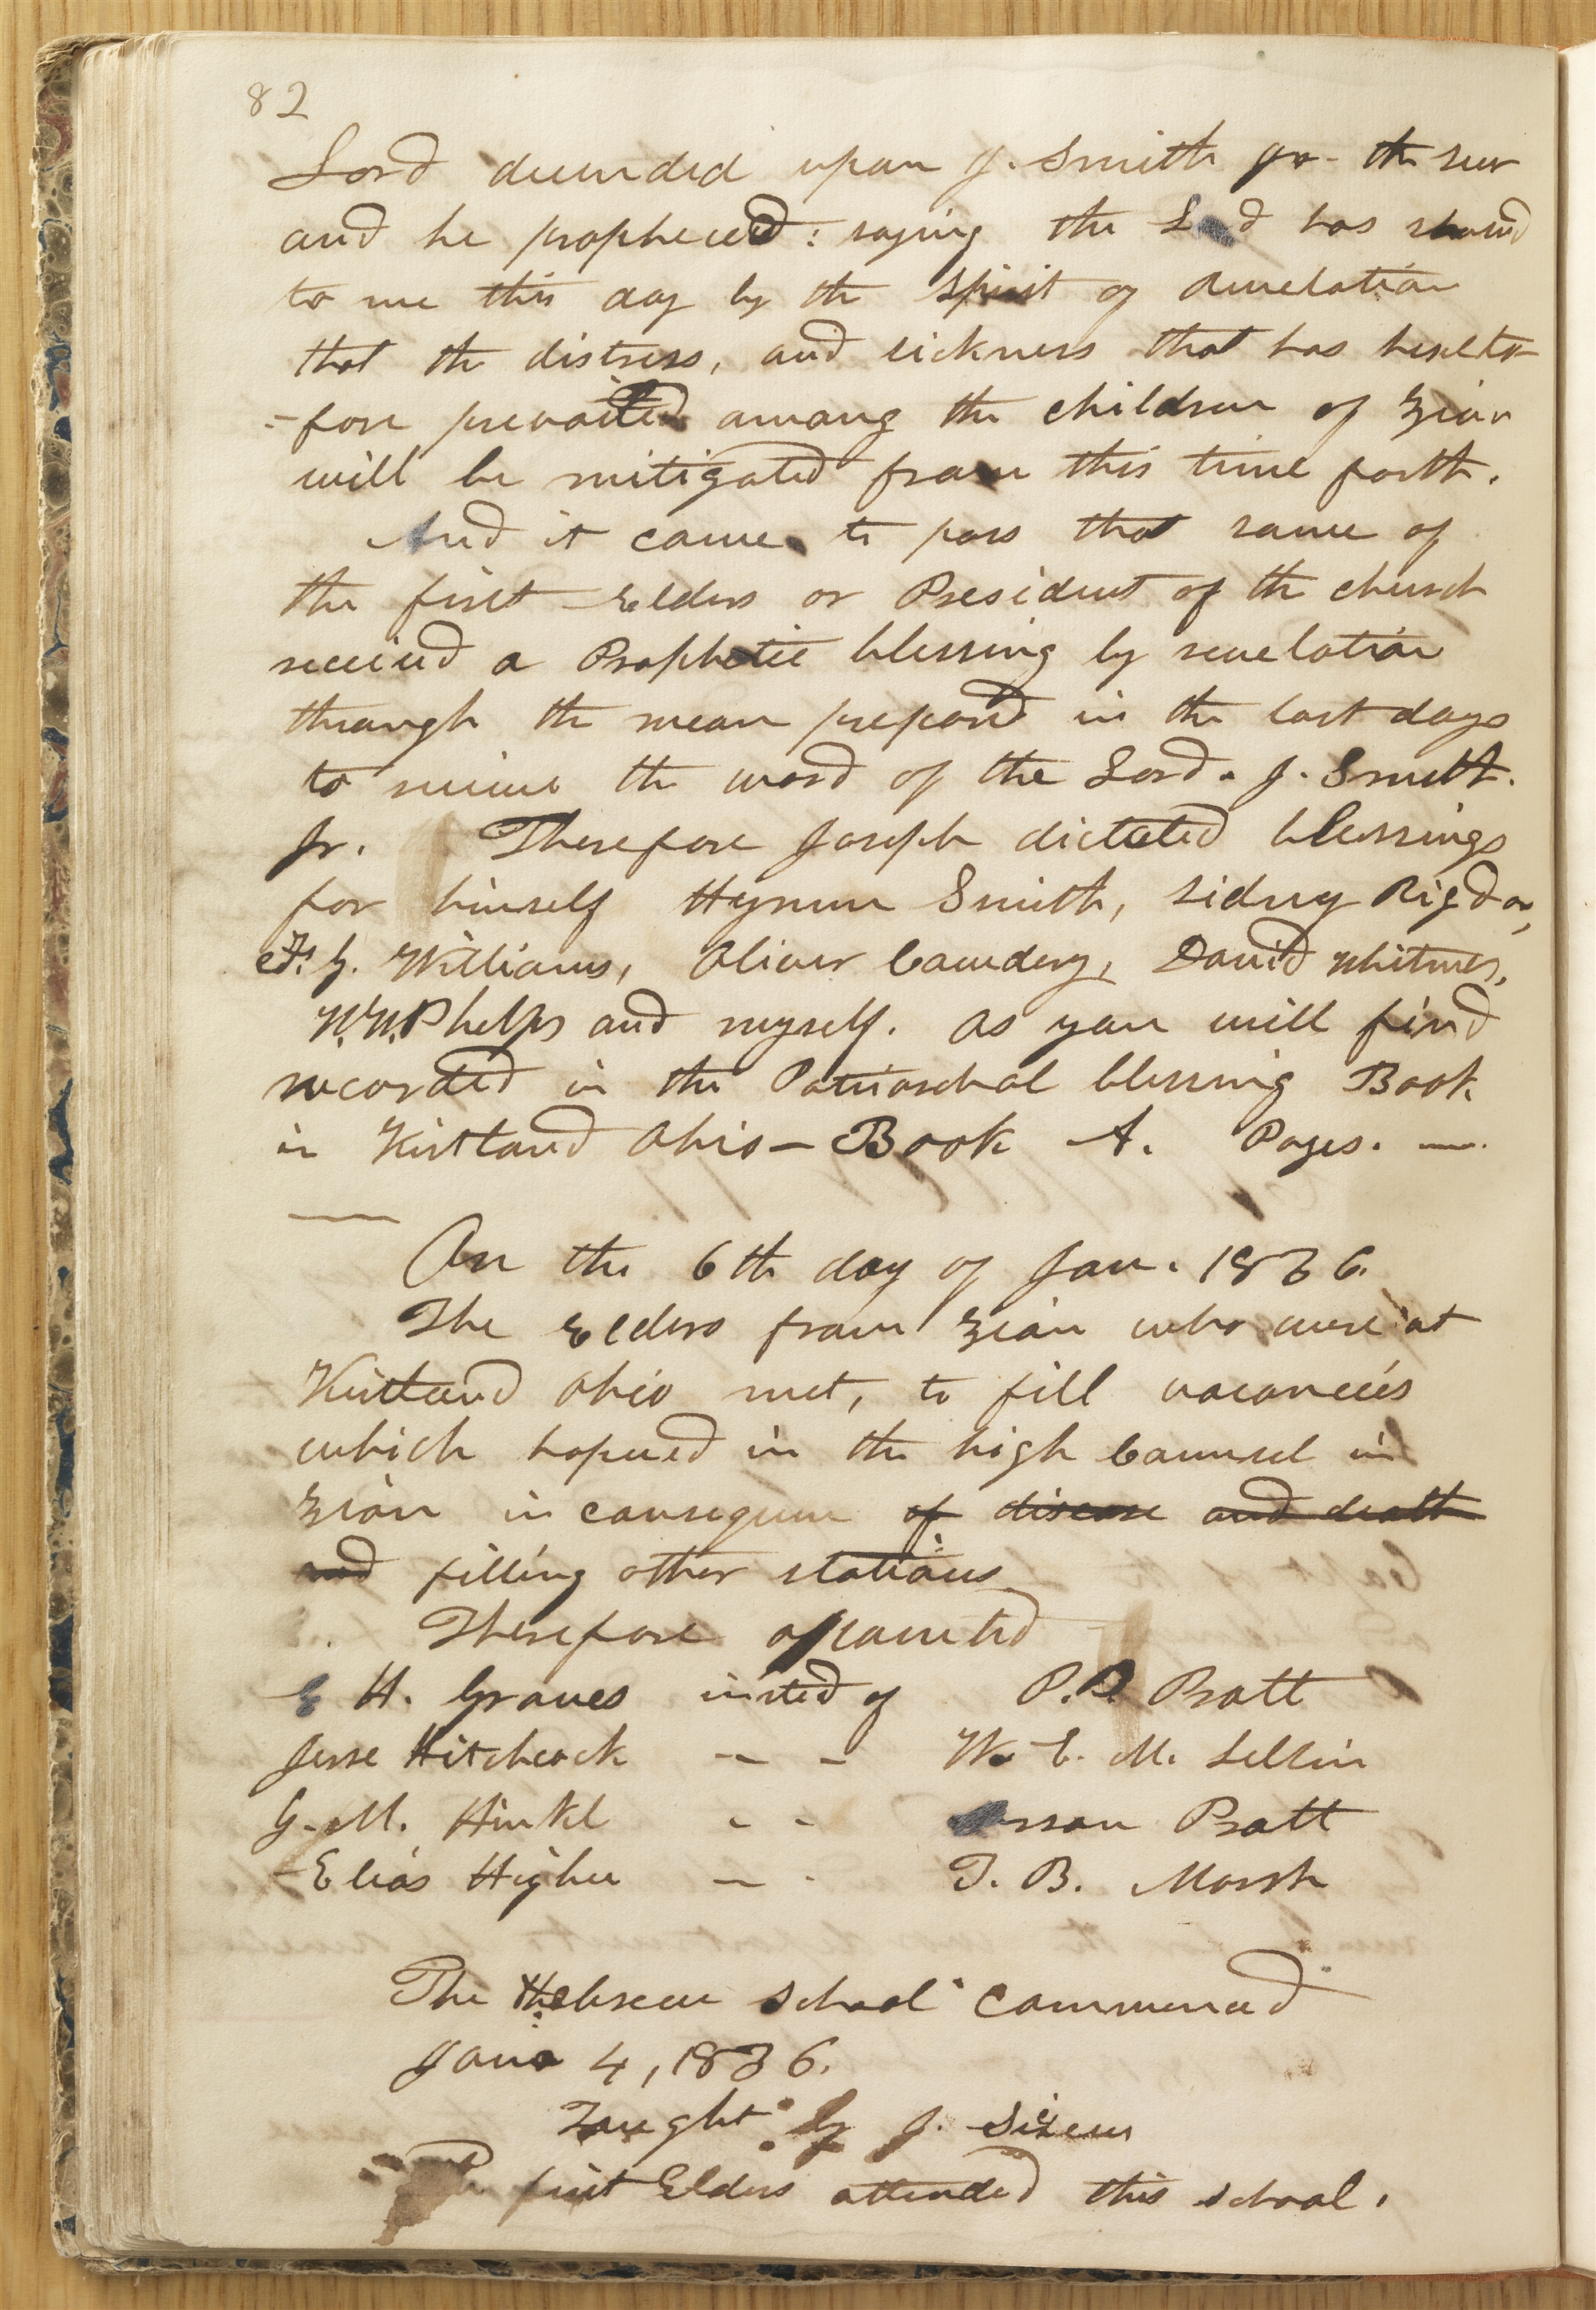 82
Lord decended upon J. Smith Jr. the seer
and he propheced: saying the Lord has shewed
to me this day by the spirit of revelation
that the distress, and sickness that has hereto
=fore prevailed among the children of Zion
will be mitigated from this time forth.
And it came to pass that some of
the first Elders or President of the church
received a Prophetic blessing by revelation
through the mean prepared in the last days
to receive the word of the Lord. J. Smith.
Jr. Therefore Joseph dictated blessings
for himself Hyrum Smith, Sidney Rigdon,
F. G. Williams, Oliver Cowdery, David Whitmer,
W. W. Phelps and myself. as you will find
recorded in the Patriarchal blessing Book
in Kirtland Ohio — Book A. Pages. —.
On the 6th day of Jan. 1836.
The Elders from Zion who were at
Kirtland Ohio met, to fill vacancies
which hapned in the high Counsel in
Zion in consequence of disease and death
and filling other stations
Therefore apointed
E H. Groves insted of P. P. Pratt
Jesse Hitchcock - - W. E. M. Lellin
G. M. Hinkl - - Orson Pratt
Elias Highee - - T. B. Marsh
The Hebrew school commenced
Jan 4, 1836.
Taught by J. Sixeus
first Elders attended this school.